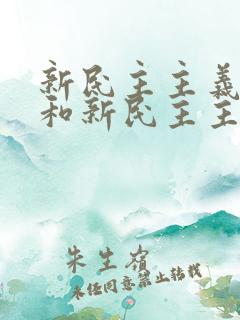 新民主主義
和新民主主
朱生嶺
未经同意禁止转载